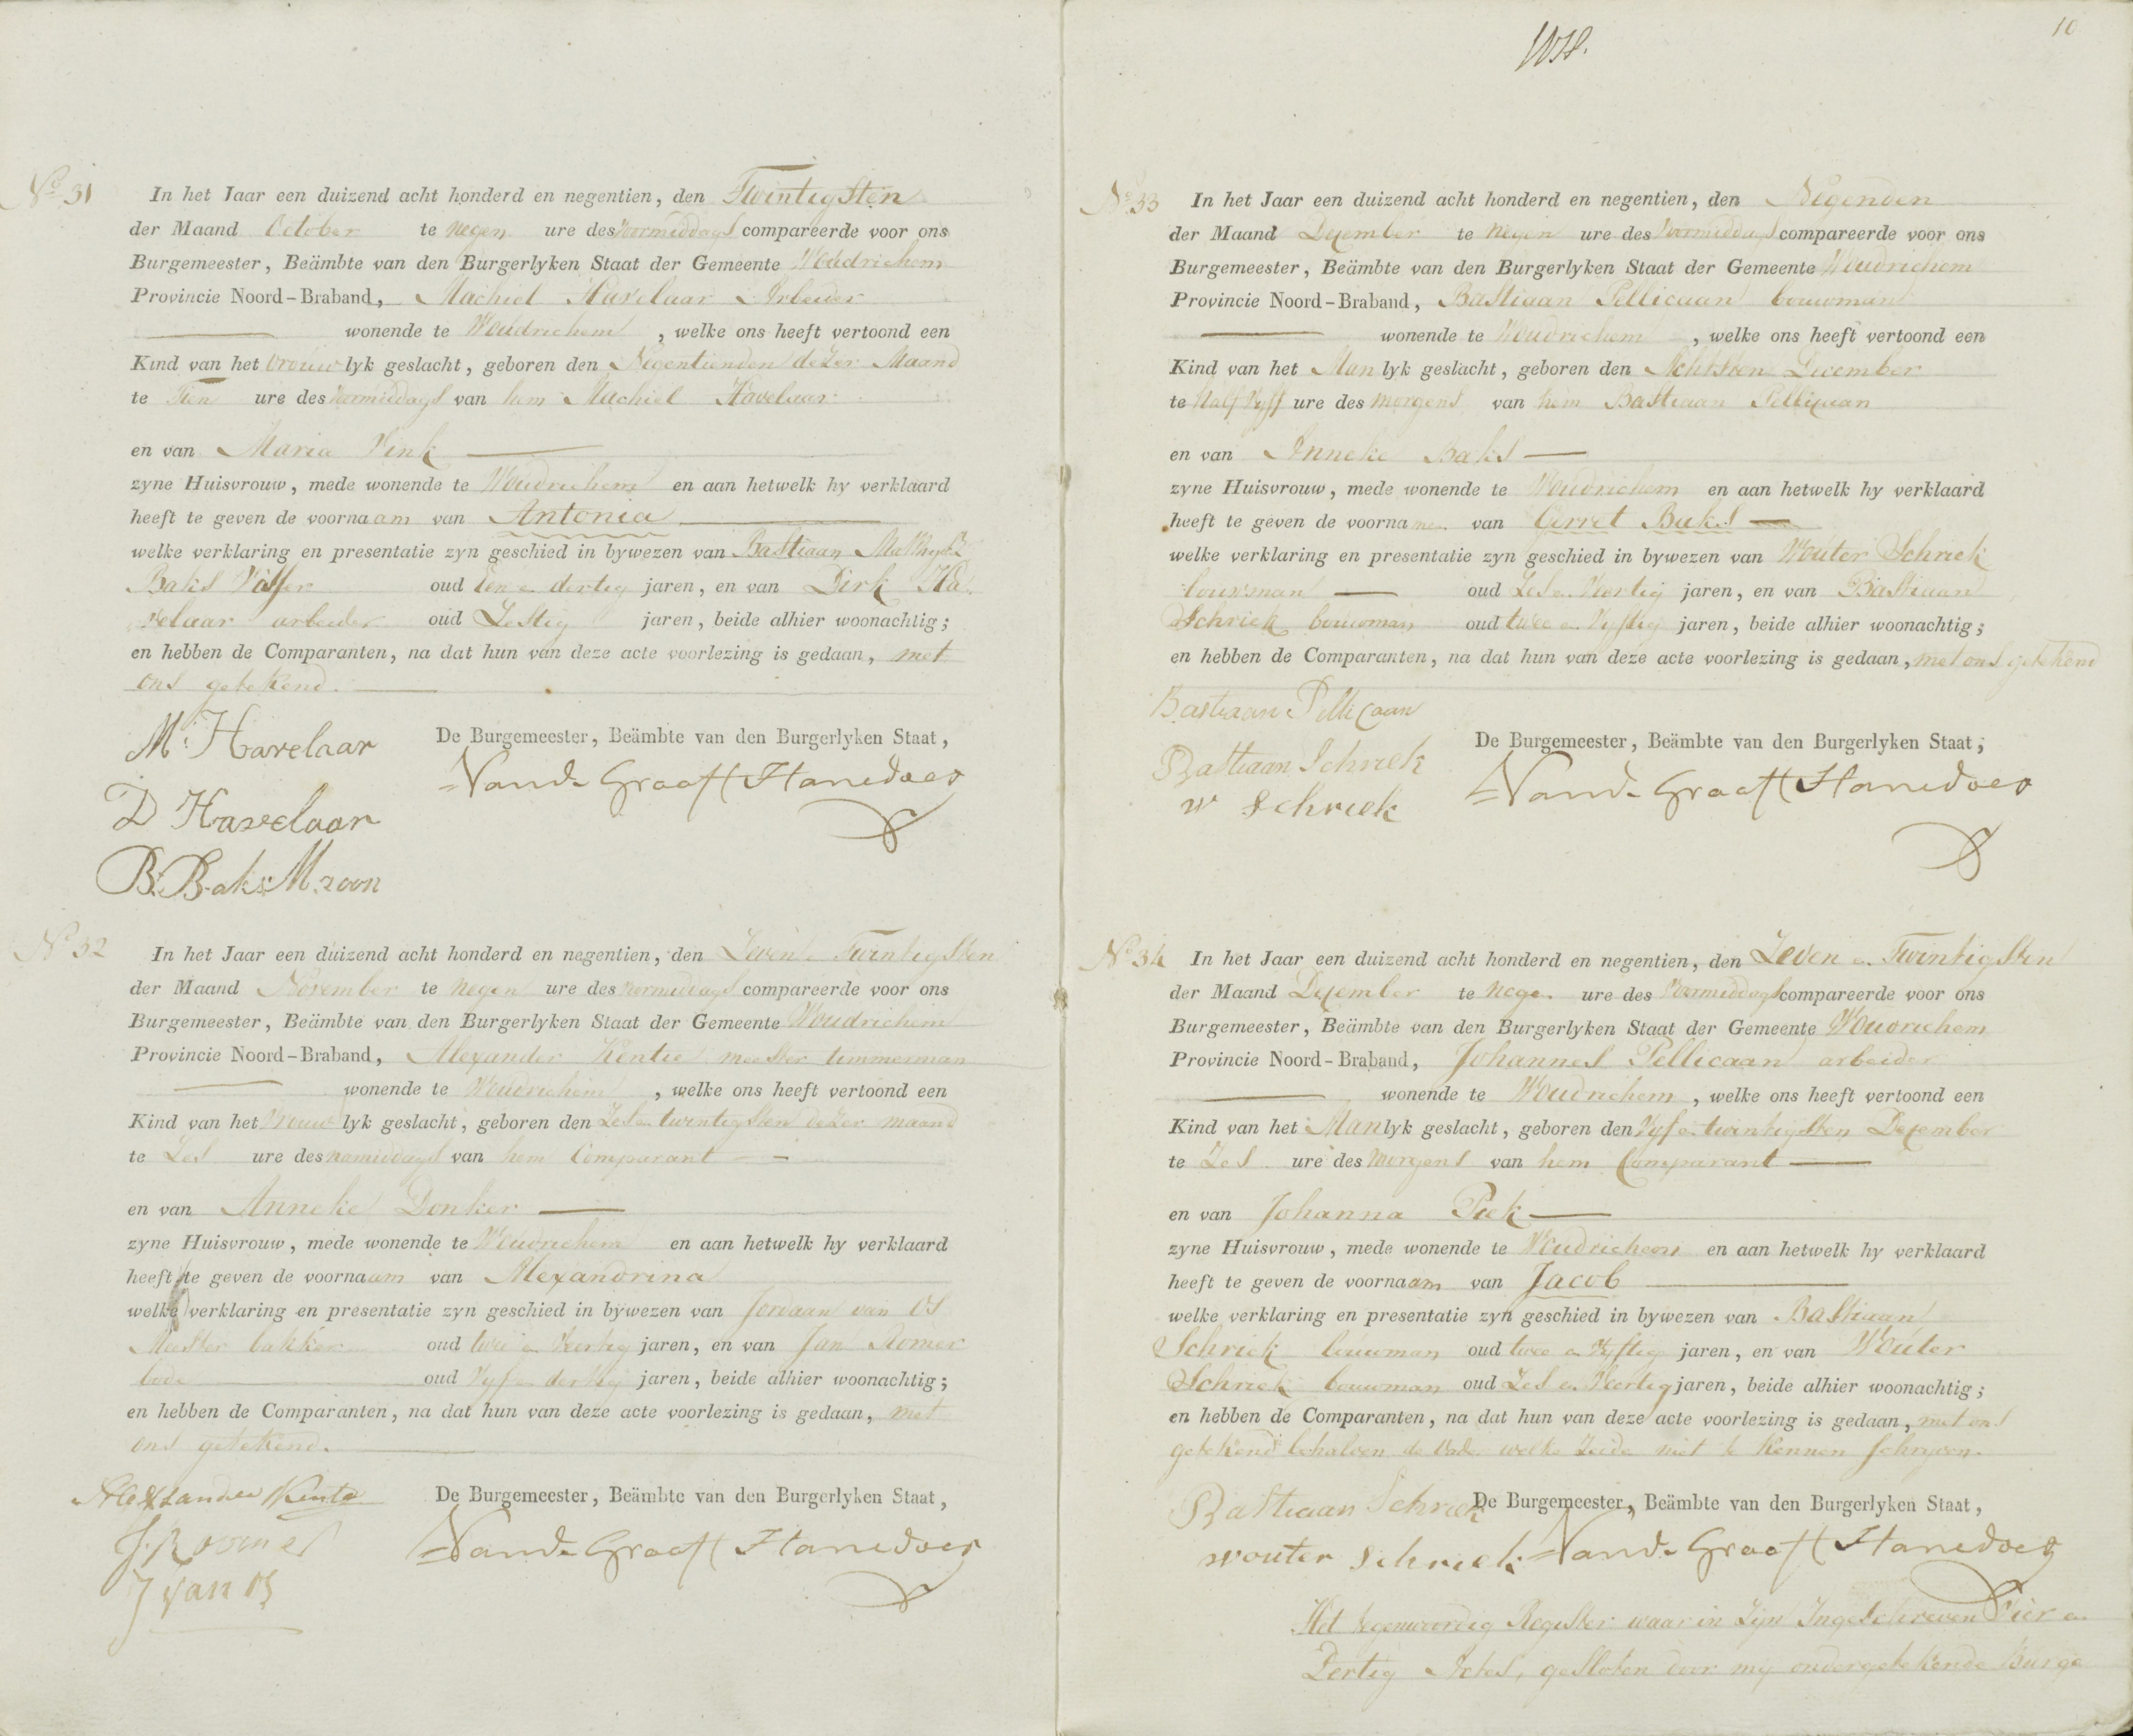 No 31
In het Jaar een duizend acht honderd en negentien, den Twintigsten
der Maand October te negen ure des voormiddags compareerde voor ons
Burgemeester, Beämbte van den Burgerlyken Staat der Gemeente Woudrichem
Provincie Noord-Braband, Machiel Havelaar Arbeider
wonende te Woudrichem, welke ons heeft vertoond een
Kind van het vrouwlyk geslacht, geboren den Negentienden dezer Maand
te Tien ure des voormiddags van hem Machiel Havelaar
en van Maria Vink
zyne Huisvrouw, mede wonende te Woudrichem en aan hetwelk hy verklaard
heeft te geven de voornaam van Antonia
welke verklaring en presentatie zyn geschied in bywezen van Bastiaan Mathys
Baks Visser oud Een en dertig jaren, en van Dirk Ha-
velaar arbeider oud Zestig jaren, beide alhier woonachtig;
en hebben de Comparanten, na dat hun van deze acte voorlezing is gedaan, met
ons getekend.
M: Havelaar
De Burgemeester, Beämbte van den Burgerlyken Staat,
Vand Graaff Hanedoes
D Havelaar
B. Baks M. zoon
No 32
In het Jaar een duizend acht honderd en negentien, den Zeven en Twintigsten
der Maand November te negen ure des voormiddags compareerde voor ons
Burgemeester, Beämbte van den Burgerlyken Staat der Gemeente Woudrichem
Provincie Noord-Braband, Alexander Kentie meester timmerman
wonende te Woudrichem, welke ons heeft vertoond een
Kind van het Vrouwlyk geslacht, geboren den Zes en twintigsten dezer maand
te Zes ure des namiddags van hem Comparant
en van Anneke Donker
zyne Huisvrouw, mede wonende te Woudrichem en aan hetwelk hy verklaard
heeft te geven de voornaam van Alexandrina
welke verklaring en presentatie zyn geschied in bywezen van Jordaan van Os
Meester bakker oud twee en Veertig jaren, en van Jan Romer
bode oud Vyf en dertig jaren, beide alhier woonachtig;
en hebben de Comparanten, na dat hun van deze acte voorlezing is gedaan, met
ons getekend.
Alexander Kentie
De Burgemeester, Beämbte van den Burgerlyken Staat,
J. Roomer
Vand Graaff Hanedoes
J van Os
10
No 33
In het Jaar een duizend acht honderd en negentien, den Negenden
der Maand Dezember te negen ure des Voormiddags compareerde voor ons
Burgemeester, Beämbte van den Burgerlyken Staat der Gemeente Woudrichem
Provincie Noord-Braband, Bastiaan Pellicaan bouwman
wonende te Woudrichem, welke ons heeft vertoond een
Kind van het Manlyk geslacht, geboren den Achtsten December
te Half Vyff ure des morgens van hem Bastiaan Pellicaan
en van Anneke Baks
zyne Huisvrouw, mede wonende te Woudrichem en aan hetwelk hy verklaard
heeft te geven de voornamen van Gerret Baks
welke verklaring en presentatie zyn geschied in bywezen van Wouter Schriek
bouwman oud Zes en Veertig jaren, en van Bastiaan
Schriek bouwman oud twee en Vyftig jaren, beide alhier woonachtig;
en hebben de Comparanten, na dat hun van deze acte voorlezing is gedaan, met ons getekend
Bastiaan Pellicaan
De Burgemeester, Beämbte van den Burgerlyken Staat,
Bastiaan Schriek
Vand Graaff Hanedoes
W Schriek
No 34
In het Jaar een duizend acht honderd en negentien, den Zeven en Twintigsten
der Maand Dezember te negen ure des Voormiddags compareerde voor ons
Burgemeester, Beämbte van den Burgerlyken Staat der Gemeente Woudrichem
Provincie Noord-Braband, Johannes Pellicaan arbeider
wonende te Woudrichem, welke ons heeft vertoond een
Kind van het Manlyk geslacht, geboren den Vyf en twintigsten Dezember
te Zes ure des Morgens van hem Comparant
en van Johanna Piek
zyne Huisvrouw, mede wonende te Woudrichem en aan hetwelk hy verklaard
heeft te geven de voornaam van Jacob
welke verklaring en presentatie zyn geschied in bywezen van Bastiaan
Schriek bouwman oud twee en Vyftig jaren, en van Wouter
Schriek bouwman oud Zes en Veertig jaren, beide alhier woonachtig;
en hebben de Comparanten, na dat hun van deze acte voorlezing is gedaan, met ons
getekend behalven de Vader welke Zeide niet te kennen schryven.
Bastiaan Schriek
De Burgemeester, Beämbte van den Burgerlyken Staat,
Wouter Schriek
Vand Graaff Hanedoes
Het tegenwoordig Register waar in Zyn Ingeschreven Vier en
Dertig Actes, gesloten door my ondergetekende Burge